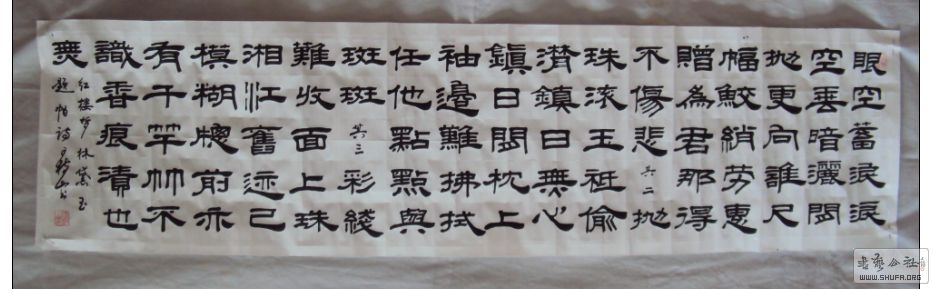 眼空蓄淚淚
空垂暗灑閒
抛更向誰尺
幅鮫綃劳惠
贈為君那得
不傷悲 其二 抛
珠滚玉祗偷
潸鎮日無心
鎮日閒枕上
袖邊難拂拭
任他點點與
斑斑 其三 彩綫
難收面上珠
湘江舊迹已
模糊窓前亦
有千竿竹不
識香痕漬也
無
红樓梦林黛玉
题帕诗
书艺公社
WWW.SHUFA.ORG